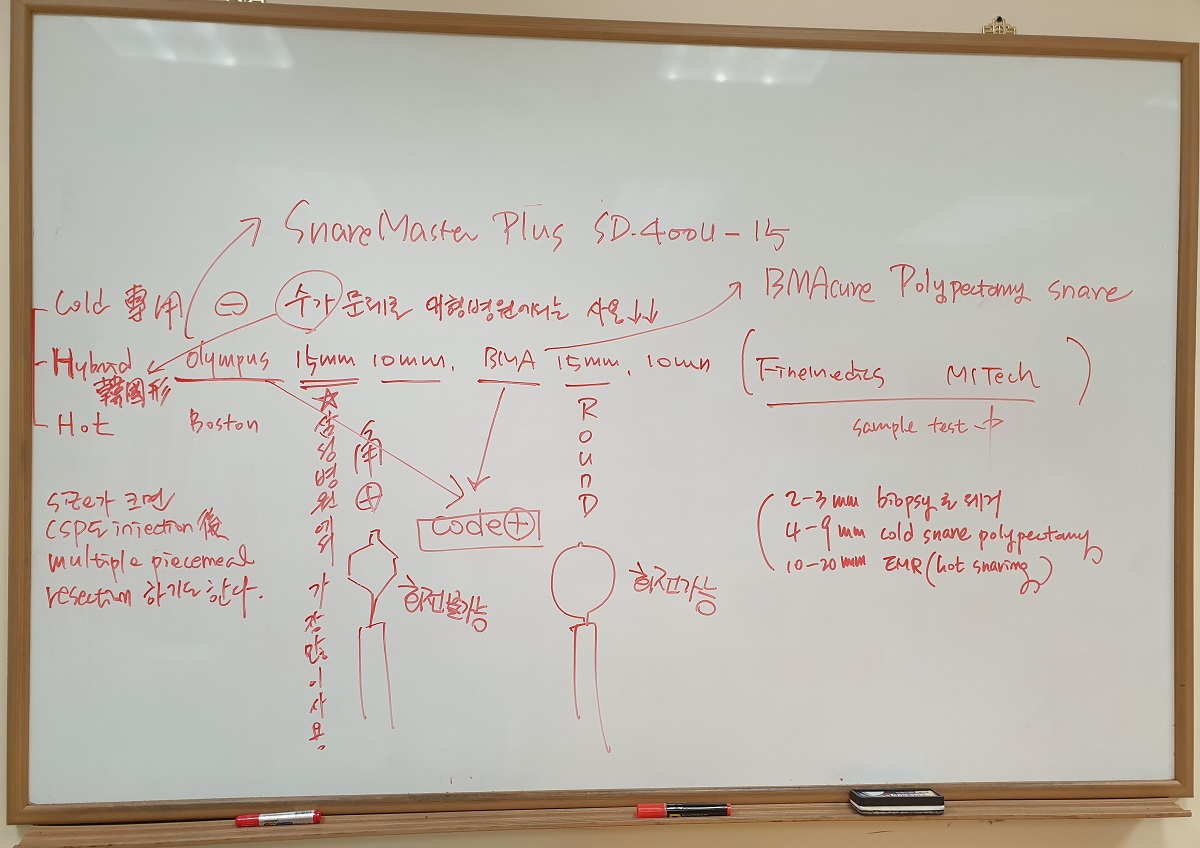 SnareMaster Plus SD-400U-15
BMAcure Polypectomy snare
Cold 專用 ⊖ 수가 문제로 대형병원에서는 사용↓↓
Hybrid Olympus 15mm 10mm, BMA 15mm, 10mm (Finemedics MITech)
韓國形
sample test 中
Hot Boston
☆삼성병원에서 가장 많이 사용.
角 ⊕
RounD
code⊕
size가 크면
CSP도 injection 後
multiple piecemeal
resection 하기도 한다.
회전불가능
회전가능
2-3mm biopsy로 제거
4-9mm cold snare polypectomy
10-20mm EMR (hot snaring)